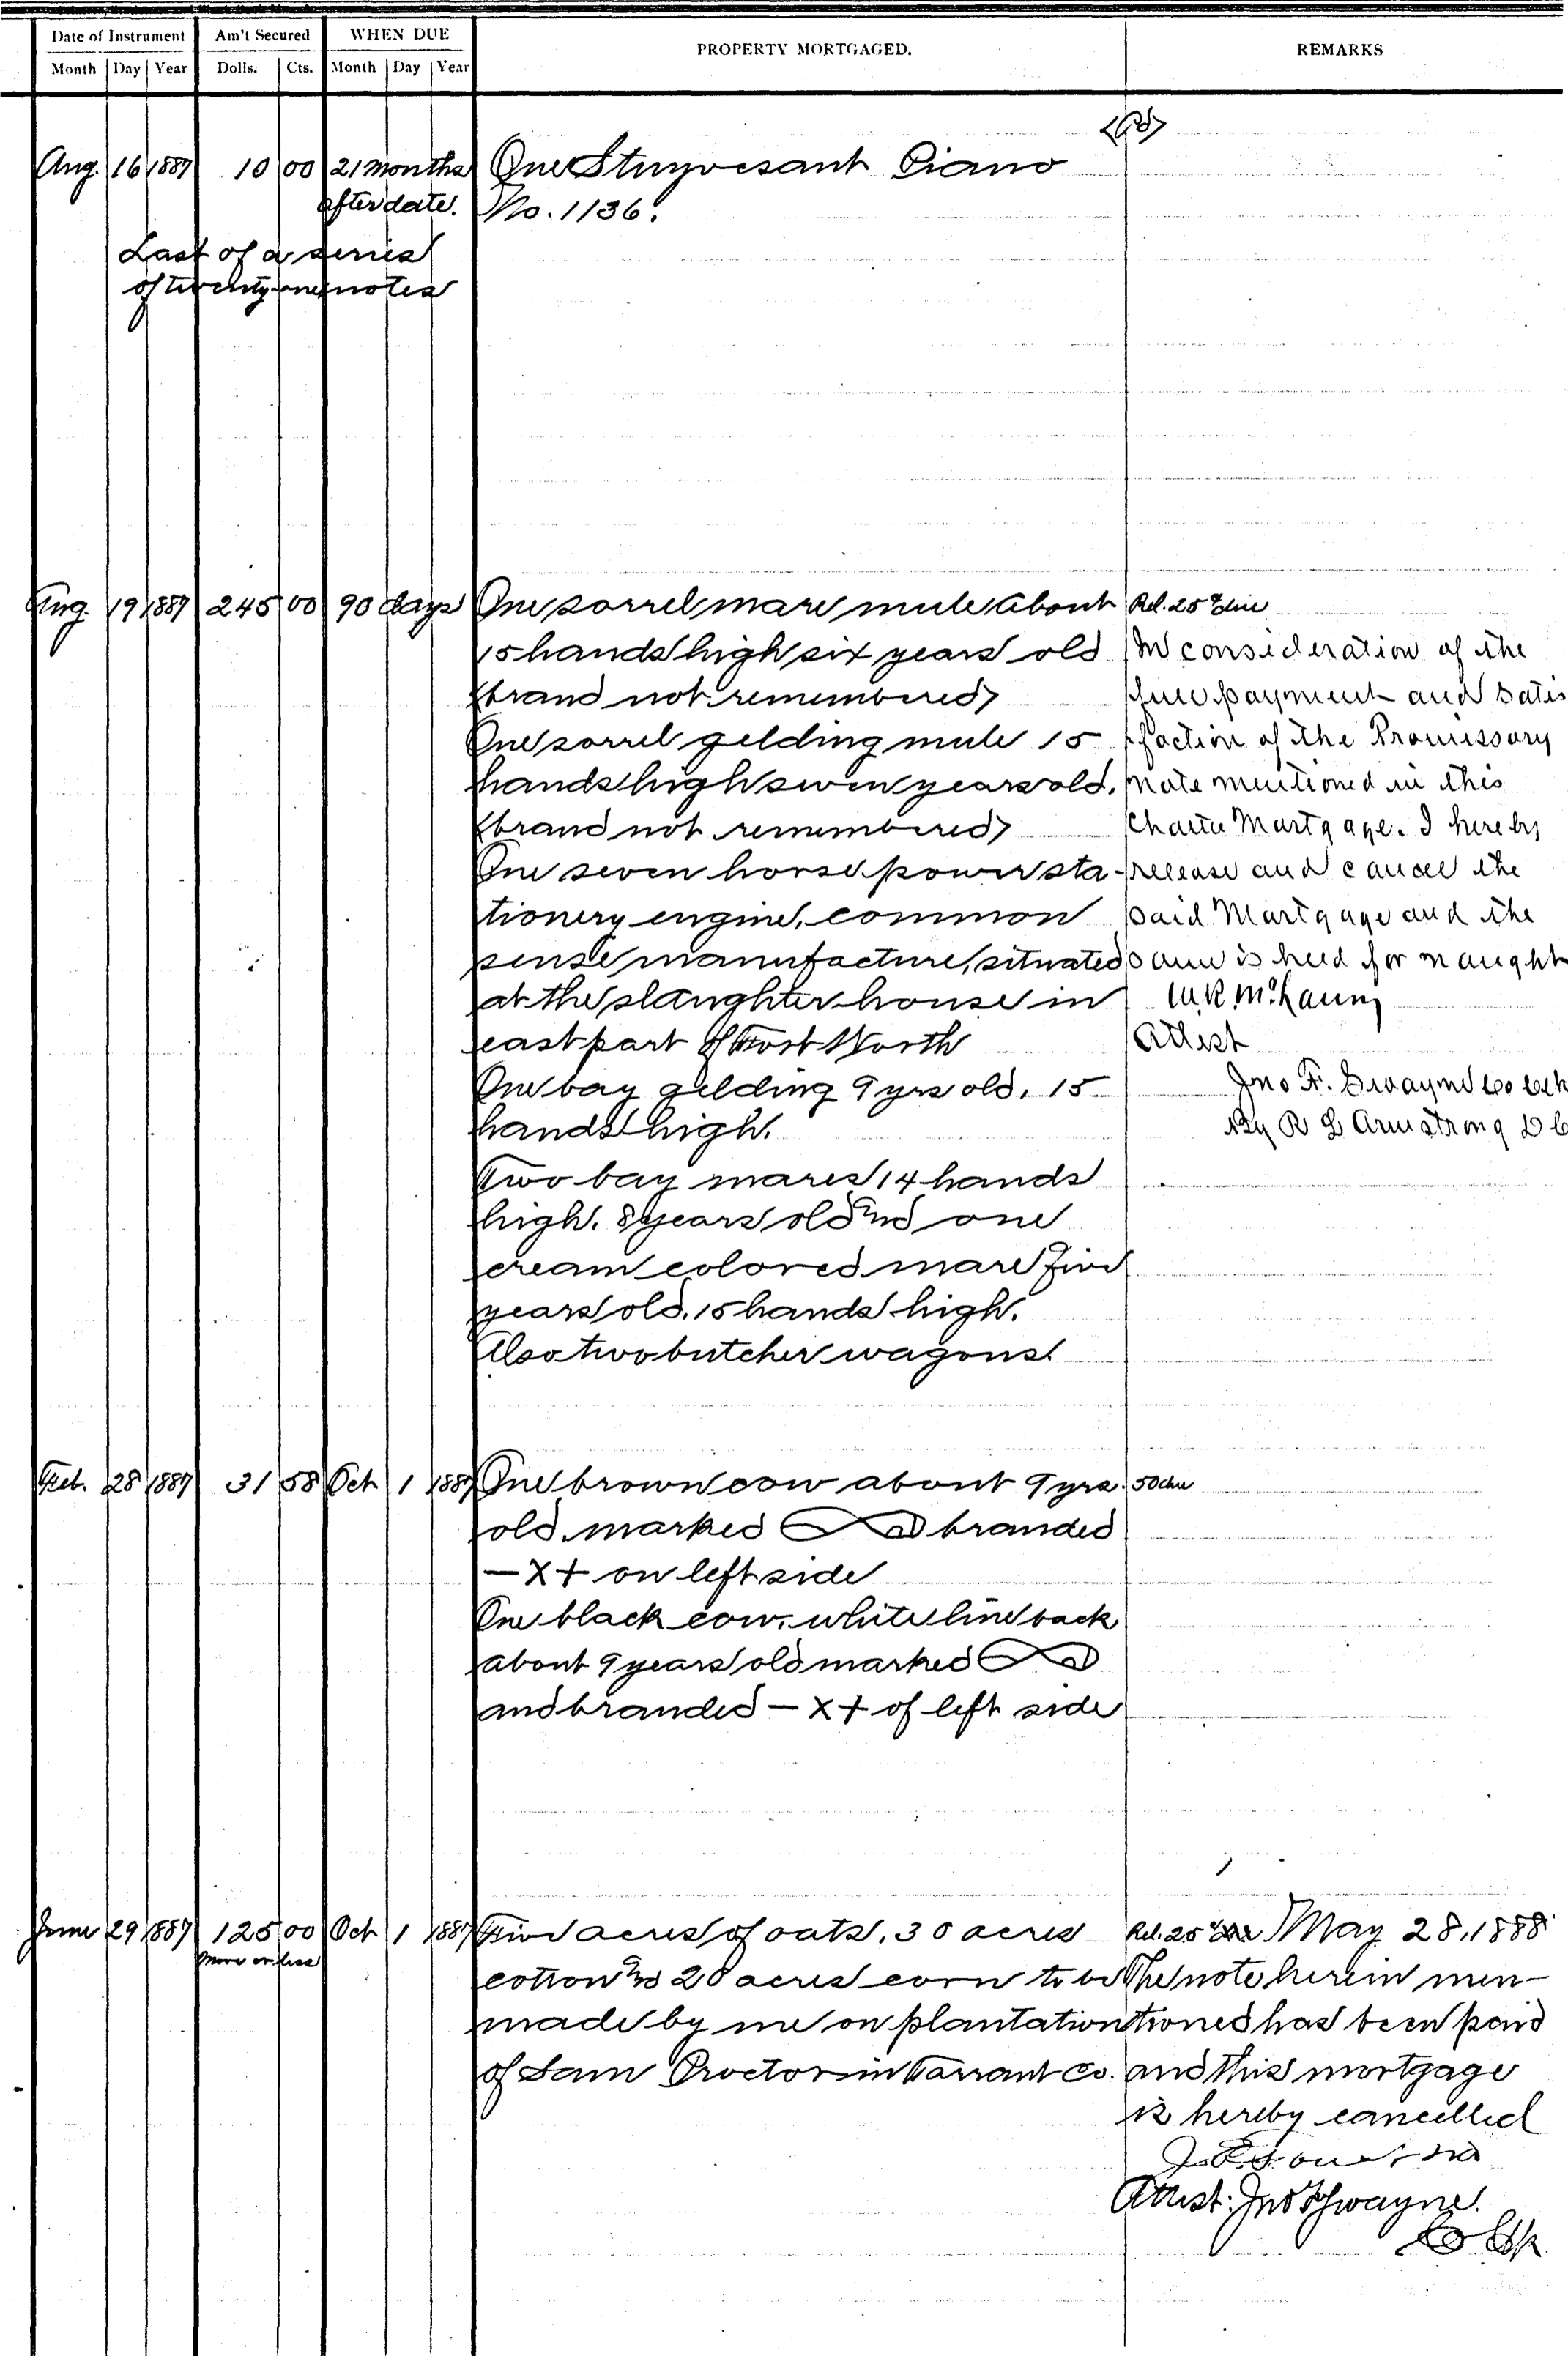 Date of Instrument Am't Secured WHEN DUE PROPERTY MORTGAGED. REMARKS
Month Day Year Dolls. Cts. Month Day Year
Aug. 16 1887 10 00 21 months One Stuyvesant Piano
after date. No. 1136.
Last of a series
of twenty-one notes
Aug. 19 1887 245 00 90 days One sorrel mare mule about
15 hands high six years old
(brand not remembered)
One sorrel gelding mule 15
hands high seven years old.
(brand not remembered)
One seven horse power sta-
tionery engine, common
sense manufacture, situated
at the slaughter house in
east part of Fort Worth
One bay gelding 9 yrs old. 15
hands high.
Two bay mares 14 hands
high. 8 years old and one
cream colored mare five
years old. 15 hands high.
Also two butcher wagons.
Rel. 25¢ due
In consideration of the
full payment and Satis
faction of the Promissory
note mentioned in this
Chattel Mortgage. I hereby
release and cancel the
said Mortgage and the
same is held for naught
W.R. 
Attest
Jno F. Swayne Co Clk
By R L Armstrong D C
Feb. 28 1887 31 58 Oct 1 1887 One brown cow about 9 yrs. 50 due
old. marked branded
— X + on left side
One black cow. white line back
about 9 years old marked
and branded — X + of left side
June 29 1887 125 00 Oct 1 1887 Five acres of oats. 30 acres
More or less
cotton and 20 acres corn to be
made by me on plantation
of Sam Proctor in Tarrant Co.
Rel. 25¢ due May 28, 1888
The note herein men-
tioned has been paid
and this mortgage
is hereby cancelled
Attest: Jno F Swayne.
Co Clk